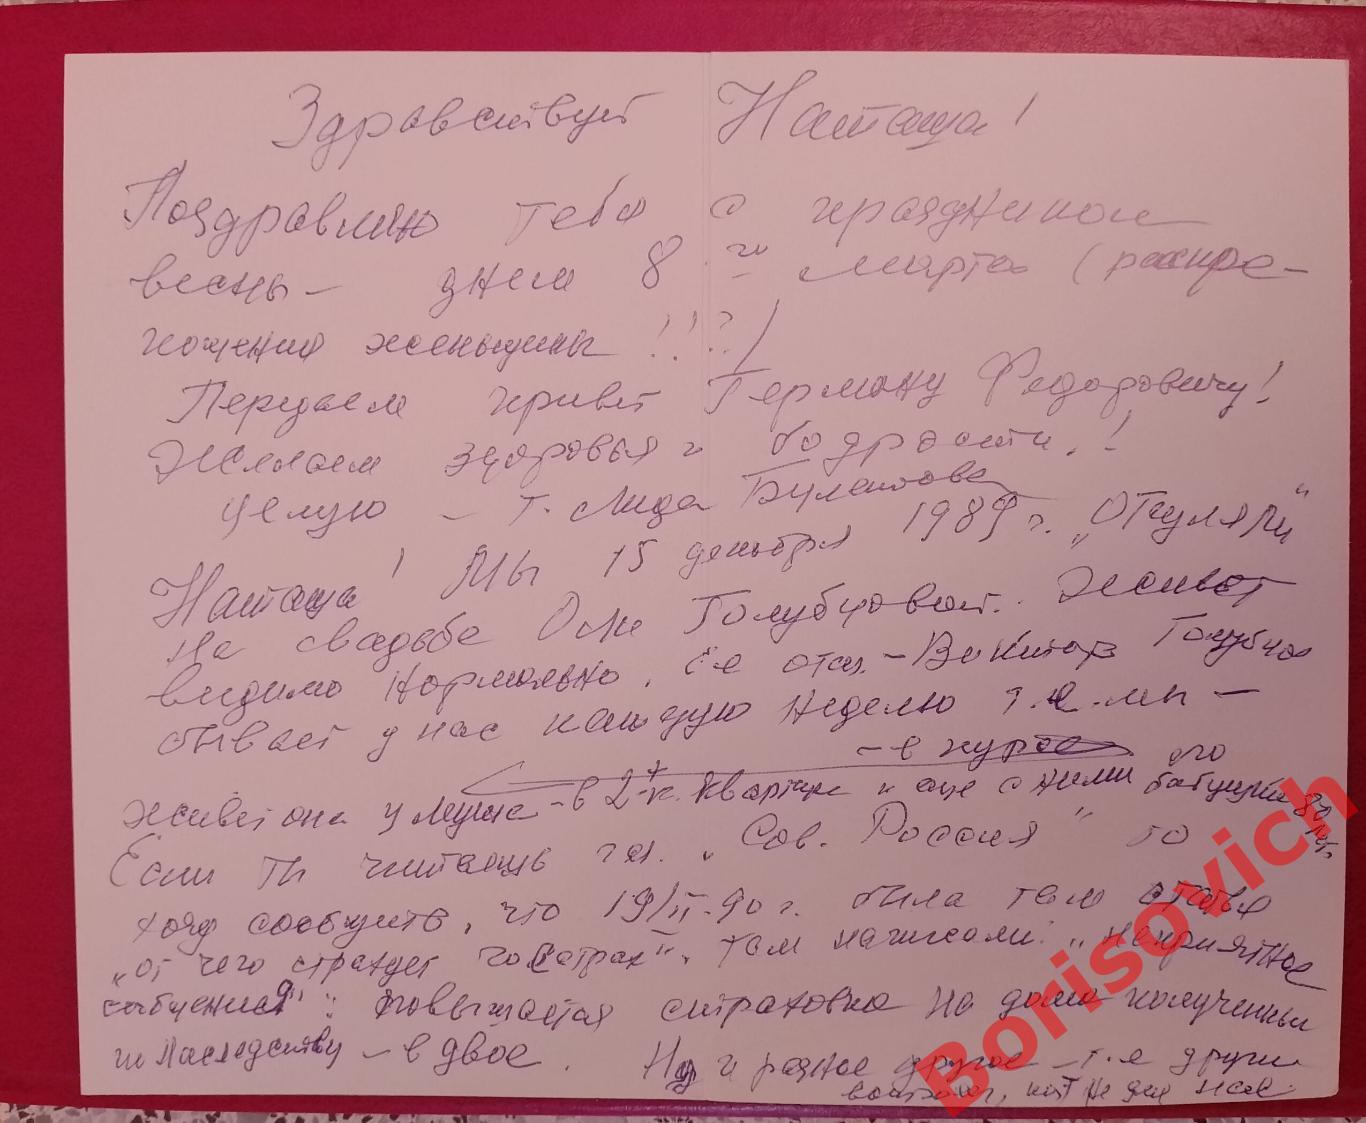 Здравствуй Наташа!
Поздравляю тебя с праздником
весны – днем 8-го Марта (раскре-
пощения женьщины!!?)
Передаем привет Герману Федоровичу!
Желаем здоровья и бодрости!
Целую – т. Лида
Наташа! Мы 15 декабря 1989 г. „отгуляли"
на свадьбе Оли Голубцовой. Живет
видимо нормально. Ее отец – Виктор Голубцов
бывает у нас каждую неделю т.е. мы –
– в курсе
живет она у мужа – в 2х к. квартире и еще с ними его бабушка 80 лет.
Если ты читаешь газ. „Сов. Россия" то
хочу сообщить, что 19/II.90 г. была там статья
„от чего страхует госстрах". Там написали: „неприятное
сообщение": повышается страховка на дома полученные
по наследству – в двое. Ну и разное другое – т.е други
вопросы, но не для нас
Borisovich